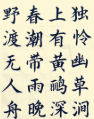 独怜幽草涧
上有黄鹂深
春潮带雨晚
野渡无人舟